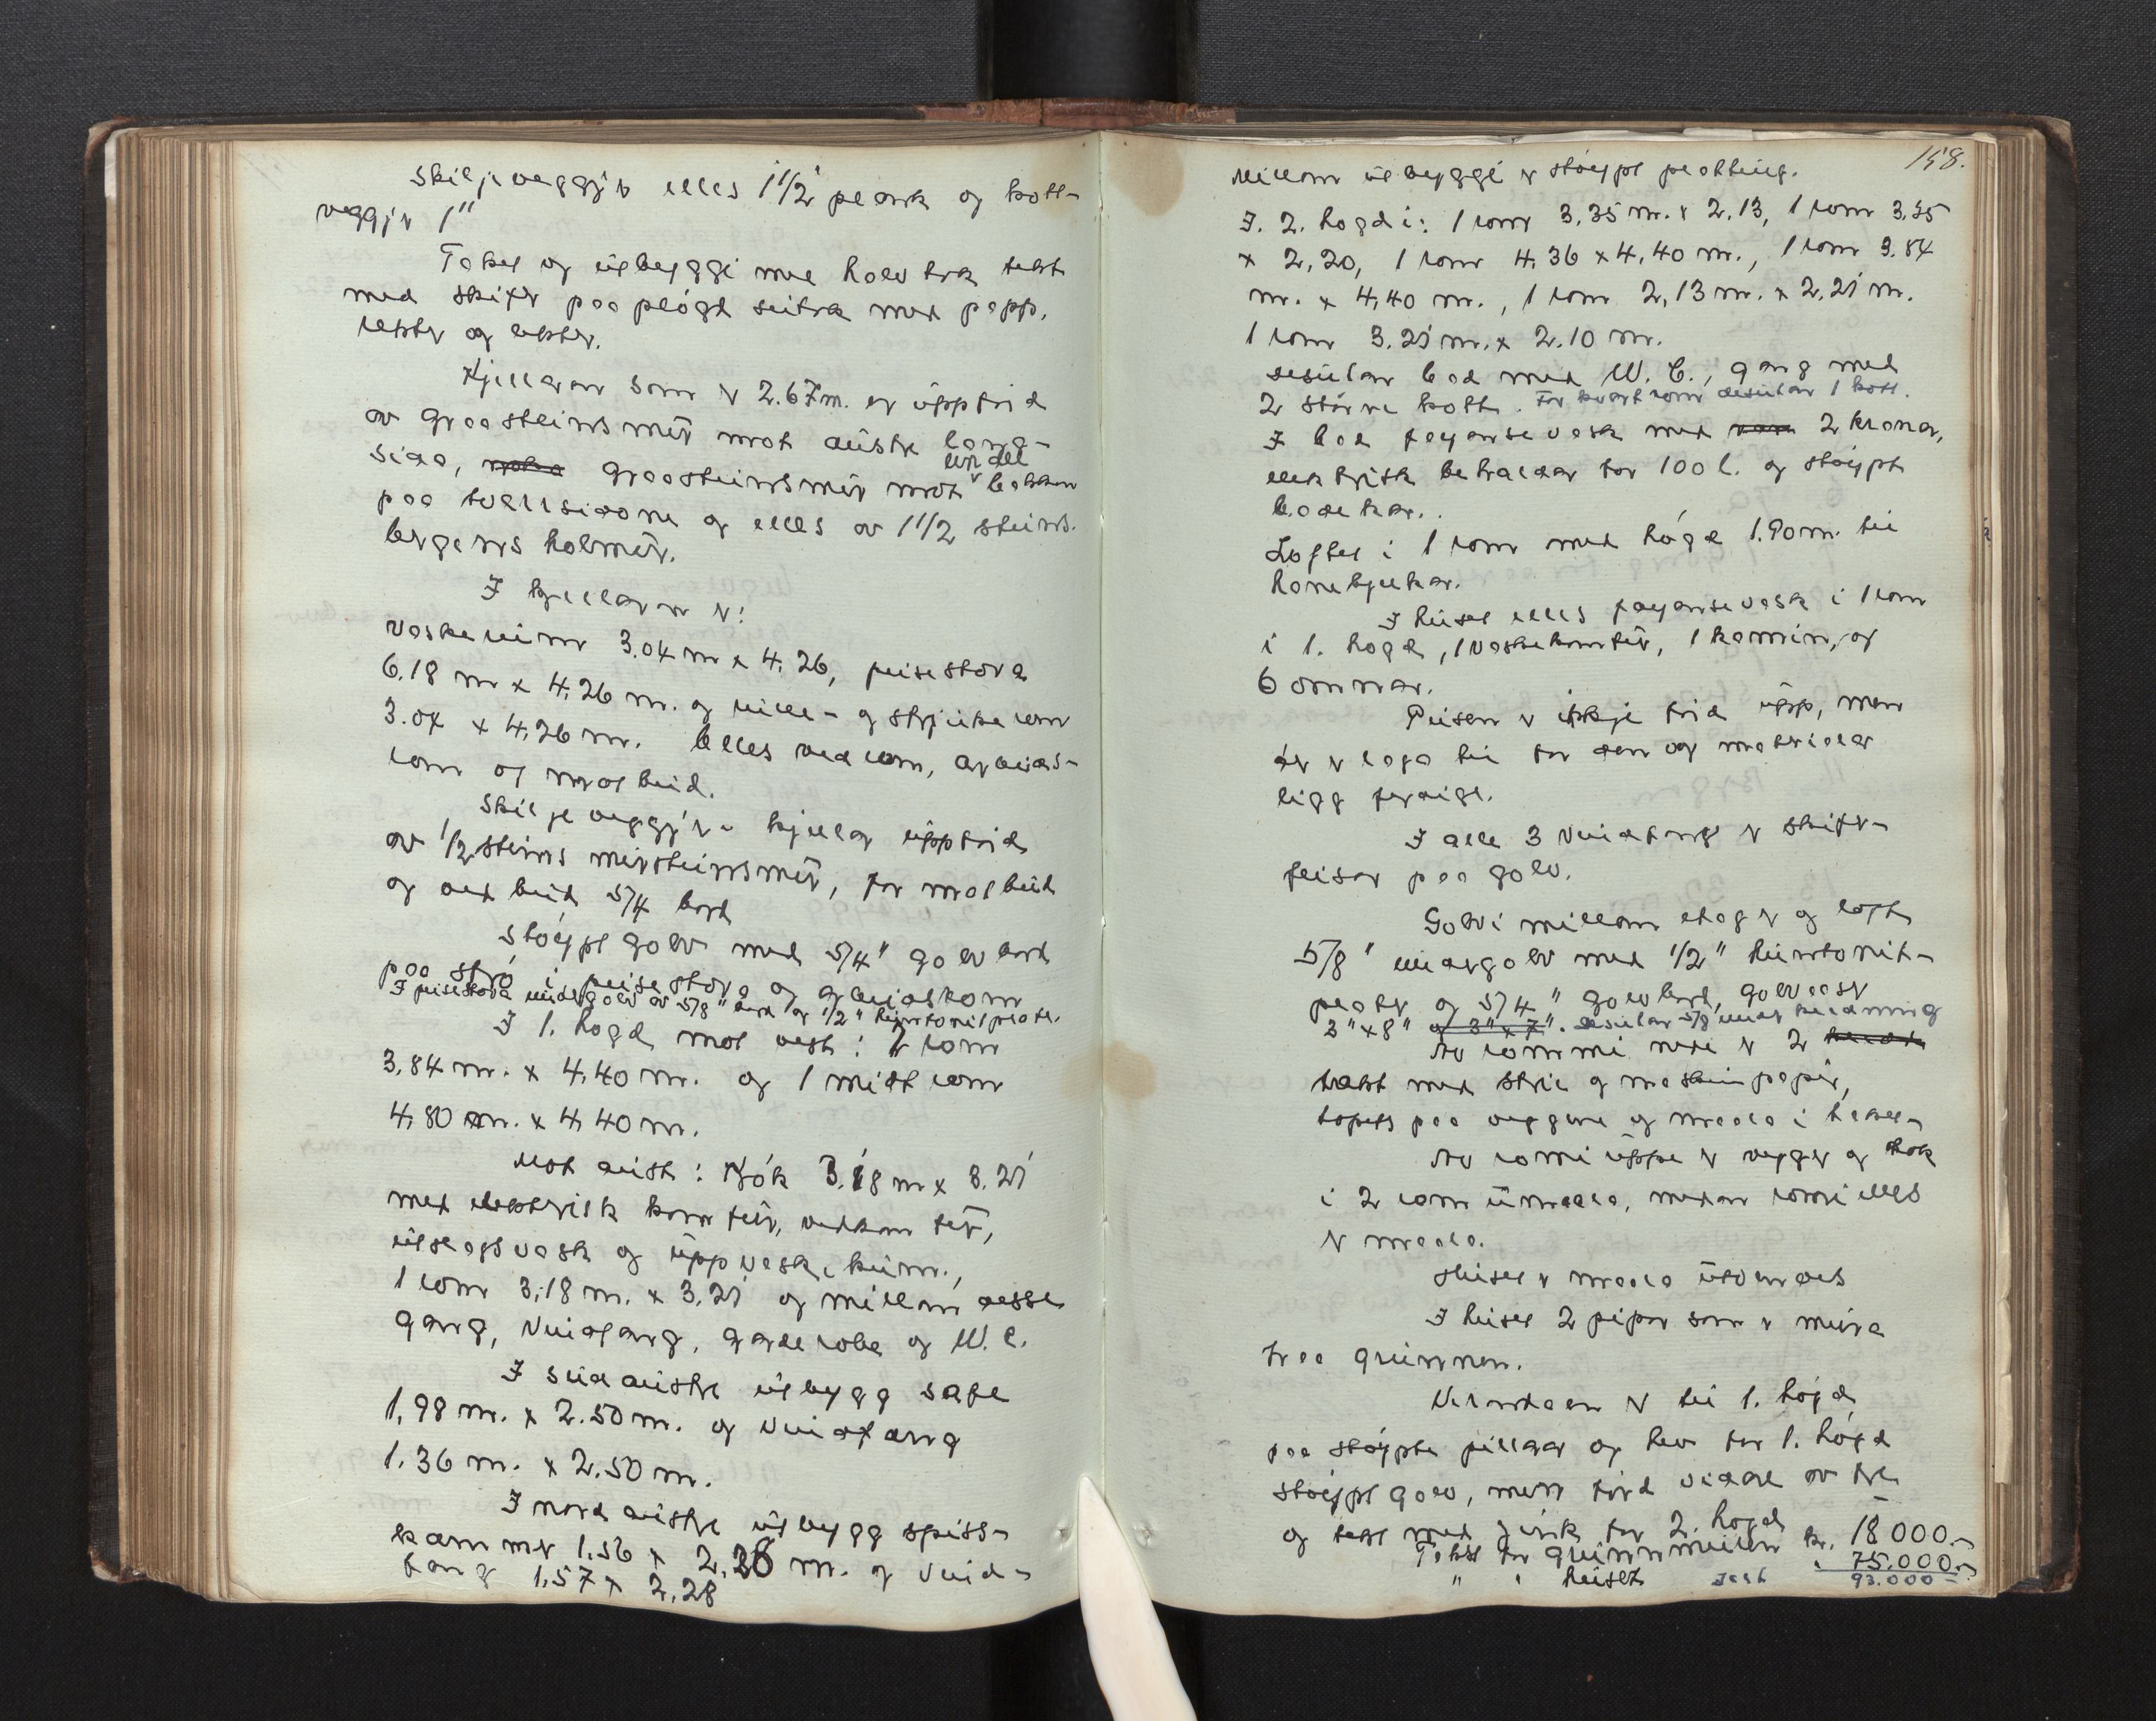 Skiljeveggjer elles 1 1/2" plank og kott-
veggjer 1"
Taket og utbyggi med halv tek tekt
med skifer paa pløgt sutak med papp,
rekter og lekter.
Kjellaren som er 2.67 m. er uppførd
av graasteinsmur mot austre lang-
sida, graasteinsmur mot ein del bakken
paa tverrsidone og elles av 1 1/2 steins
bergens holmur.
I kjellaren er:
Vaskerium 3.04 m x 4,26, peisestova
6.18 m x 4,26 m. og rulle- og strjukerom
3.04 x 4,26 m. Elles vedrom, arbeids-
rom og matbud.
Skiljeveggjer i kjellar uppførd
av 1/2 steins mursteinsmur, for matbud
og ved bud 5/4 bord
Støypt golv med 5/4" golvbord
paa strø i peisestova og arbeidsrom
I peisestova undergolv av 5/8" bord og 1/2" huntonitplate.
I 1. høgd mot vest: 1 rom
3,84 m. x 4,40 m. og 1 midtrom
4,80 m. x 4,40 m.
Mot aust: Kjøk 3,18 m x 3.21
med elektrisk komfur, vedkomfur,
utslagsvask og uppvaskkum,
1 rom 3,18 m. x 3,21 og millom desse
gang, Vindfang, garderobe og W.C.
I sudaustre utbygg safe
1,98 m. x 2.50 m. og Vindfang
1.36 m. x 2.50 m.
I nordaustre utbygg spiss-
kammer 1.56 x 2,26 m. og Vind-
fang 1,57 x 2,28
158.
Millom utbyggi er støypt platting.
I. 2. høgd i: 1 rom 3,35 m. x 2.13, 1 rom 3,35
x 2,20, 1 rom 4,36 x 4,40 m., 1 rom 3.84
m. x 4,40 m., 1 rom 2,13 m. x 2.21 m.
1 rom 3.21 m. x 2.10 m.
desutan bad med W.C., gang med
2 større kott. For kvart rom desutan 1 kott.
I bad fayansevask med 2 kranar,
elektrisk behaldar for 100 l. og støypt
badekar.
Loftet i 1 rom med høgd 1.90 m. til
hanebjelkar.
I huset elles fayansevask i 1 rom
i 1. høgd, 1 vaskekomfur, 1 kamin, og
6 omnar.
Peisen er ikkje førd upp, men
der er laga til for den og materialar
ligg ferdige.
I alle 3 Vindfang er skifer-
fliser paa golv.
Golvi millom etager og loft
5/8" undergolv med 1/2" huntonit-
plater og 5/4" golvbord, golvaaser
3" x 8" og 3" x 7". desutan 5/8 under kledning
Av rommi nede er 2
trekt med strie og maskinpapir,
tapets paa veggene og maala i taket
Av romi uppe er vegger og tak
i 2 rom umaala, medan romi elles
er maala.
Huset er maala utvendes
I huset 2 pipor som er mura
fraa grunnen.
Verandaen er til 1. høgd
paa støypte pillarar og hev for 1. høgd
støypt golv, men førd vidare av tre
og tekt med zink for 2. høgd
Takst for grunnmuren kr. 18 000.-
" " huset " 75.000.-
93.000 -